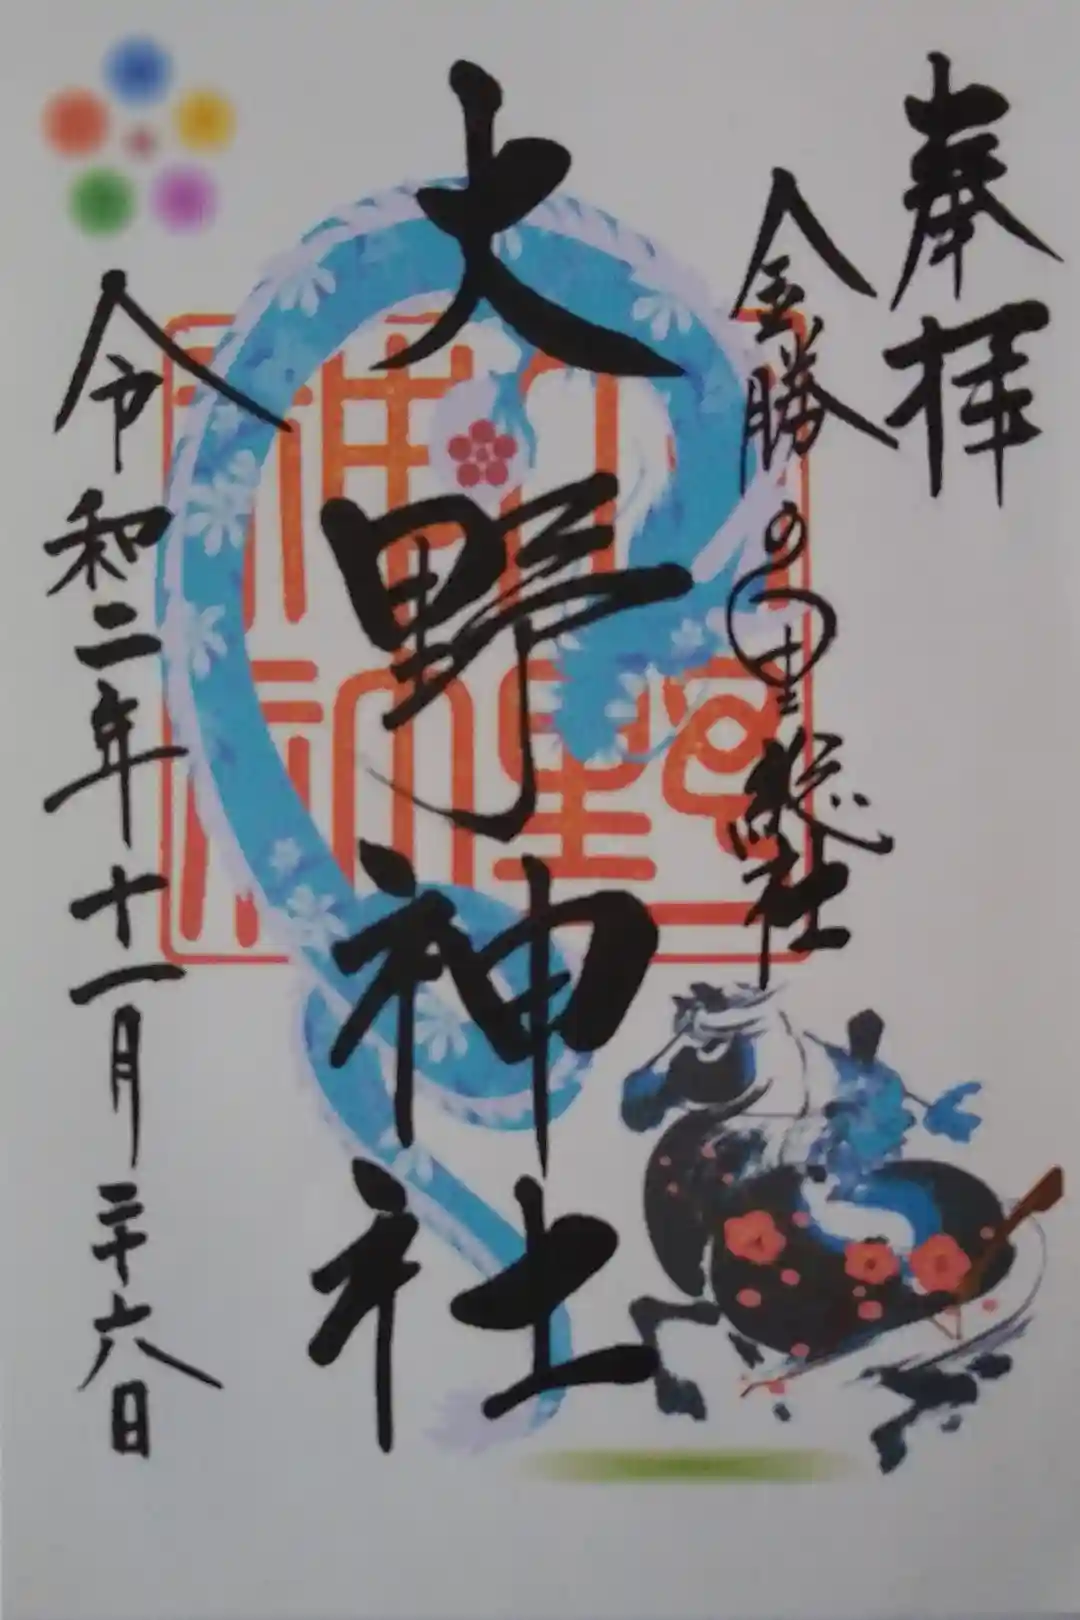 奉拝
金勝の里総社
大野神社
令和二年十一月二十六日